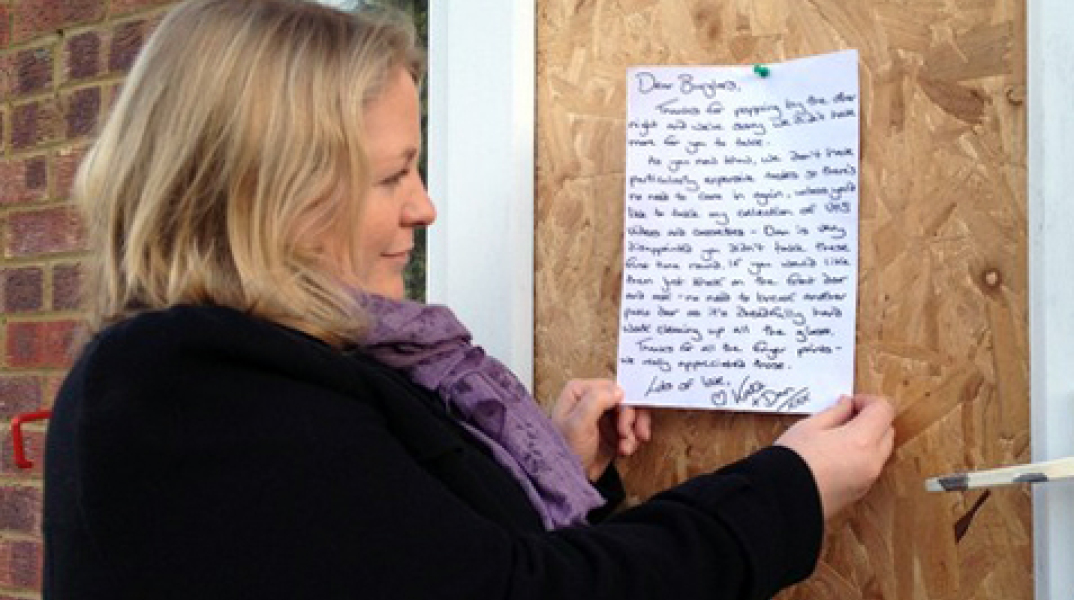 Dear Burglars,
Thanks for popping by the other
night and we're sorry we didn't have
more for you to take.
As you now know, we don't have
particularly expensive tastes so there's
no need to come in again, unless you'd
like to take my collection of VHS
videos and cassettes - Dan is very
disappointed you didn't take these
first time round. If you would like
them just knock on the front door
and ask - no need to break another
patio door as it's dreadfully hard
work cleaning up all the glass.
Thanks for all the finger prints -
we really appreciated those.
Lots of love,
& Dan